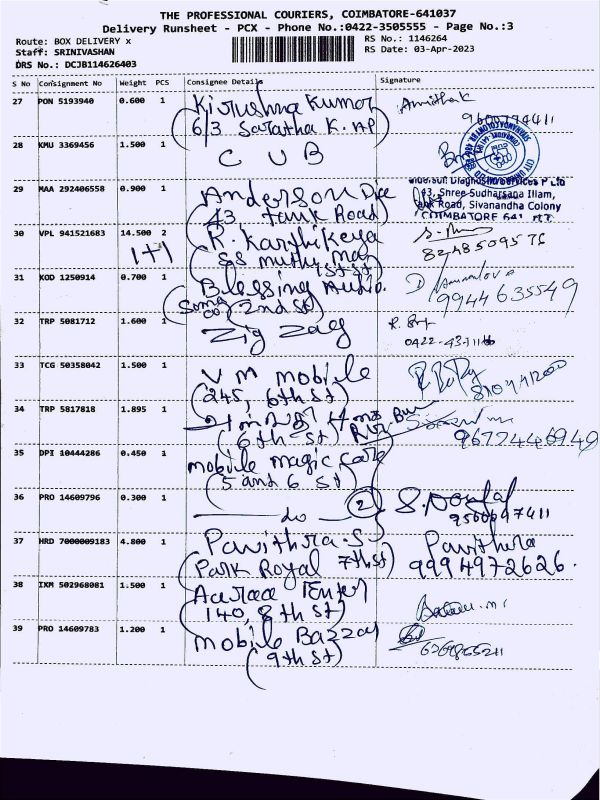 THE PROFESSIONAL COURIERS, COIMBATORE-641037
Delivery Runsheet - PCX - Phone No.:0422-3505555 - Page No.:3
Route: BOX DELIVERY x
RS No.: 1146264
Staff: SRINIVASHAN
RS Date: 03-Apr-2023
DRS No.: DCJB114626403
S No Consignment No Weight PCS Consignee Details Signature
27 PON 5193940 0.600 1 Kirushna Kumar
(6/3 Saratha K. AP)
28 KMU 3369456 1.500 1 C U B
29 MAA 292406558 0.900 1 Anderson
(43 tank Road)
43, Shree Sudharsana Illam,
Tank Road, Sivanandha Colony
COIMBATORE 641
30 VPL 941521683 14.500 2 R. Karthikeya 82485 09576
1+1
31 KOD 1250914 0.700 1 Blessing 9944635549
2nd st)
32 TRP 5081712 1.600 1 Zig Zag
0422-43-
33 TCG 50358042 1.500 1 V M mobile
(245, 6th st)
34 TRP 5817818 1.895 1
(6th st) 9677446949
35 DPI 10444286 0.450 1 mobile magic care
(5 and 6 st)
36 PRO 14609796 0.300 1 do (2)
37 HRD 7000009183 4.800 1 Pavithra.S Pavithra
(Park Royal 7th st) 9994972626.
38 IXM 502968081 1.500 1
(140, 8th st)
39 PRO 14609783 1.200 1 mobile Bazzar
(9th st)